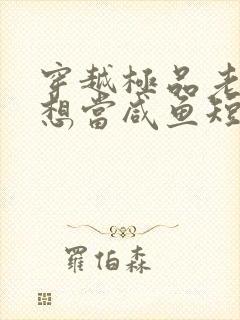 穿越極品老
想當咸鱼短
羅伯森